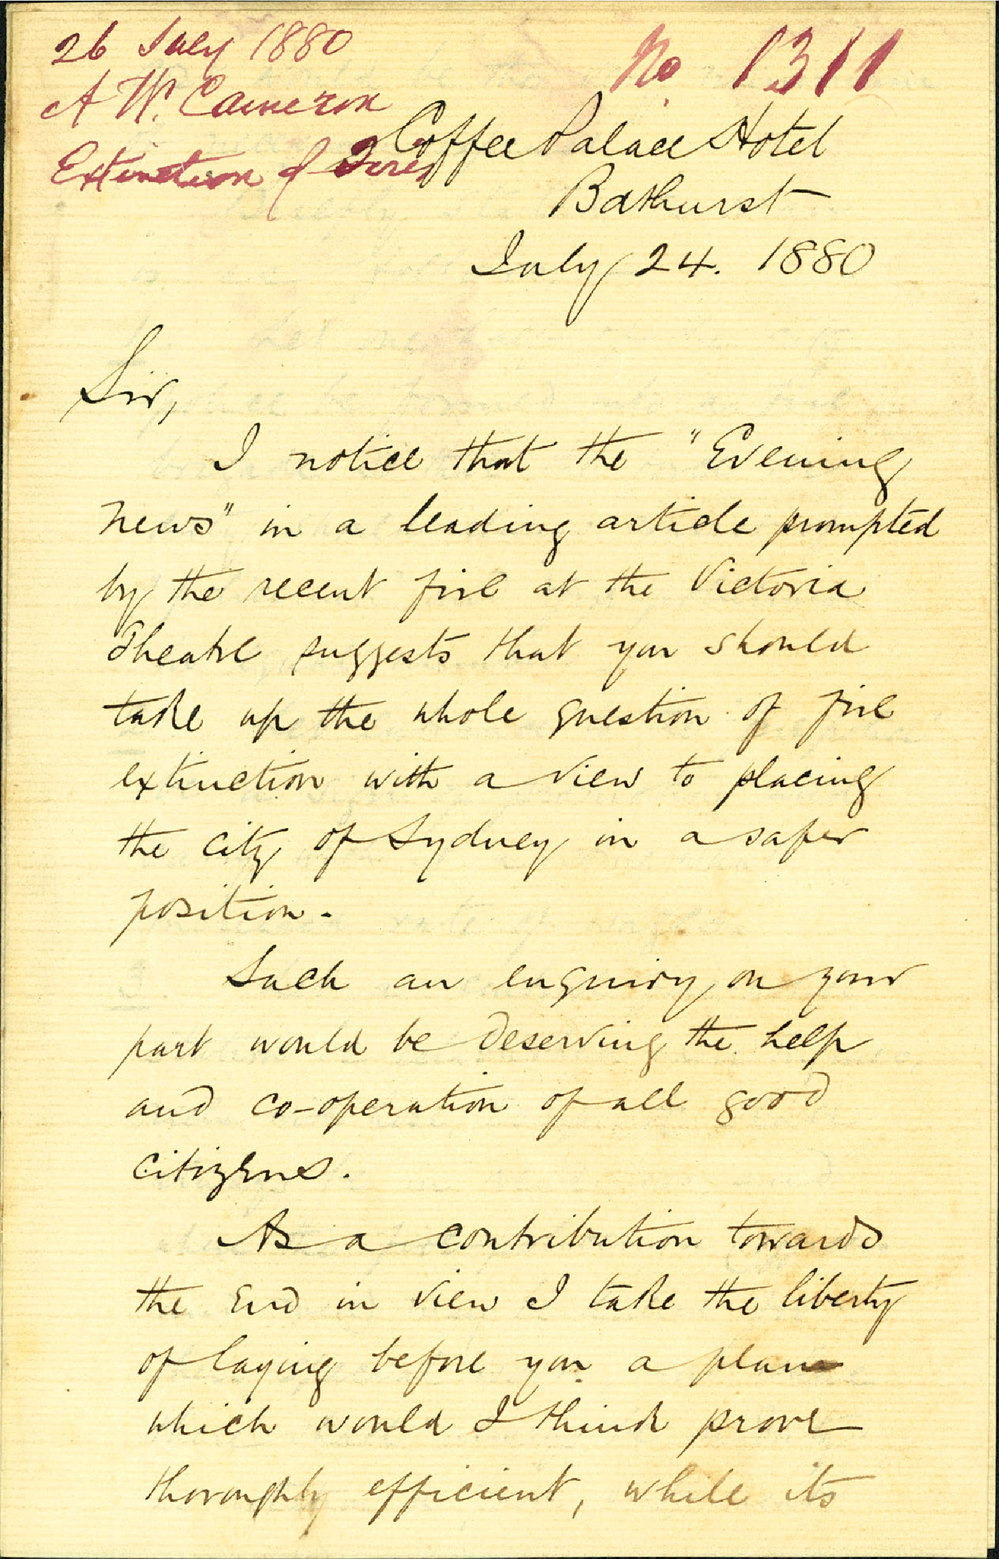 26 July 1880
No 1311
A W. Cameron
Extinction of Fires
Coffee Palace Hotel
Bathurst
July 24. 1880
Sir,
I notice that the "Evening
News" in a leading article prompted
by the recent fire at the Victoria
Theatre suggests that you should
take up the whole question of fire
extinction with a view to placing
the city of Sydney in a safer
position.
Such an enquiry on your
part would be deserving the help
and co-operation of all good
citizens.
As a contribution towards
the end in view I take the liberty
of laying before you a plan
which would I think prove
thoroughly efficient, while its